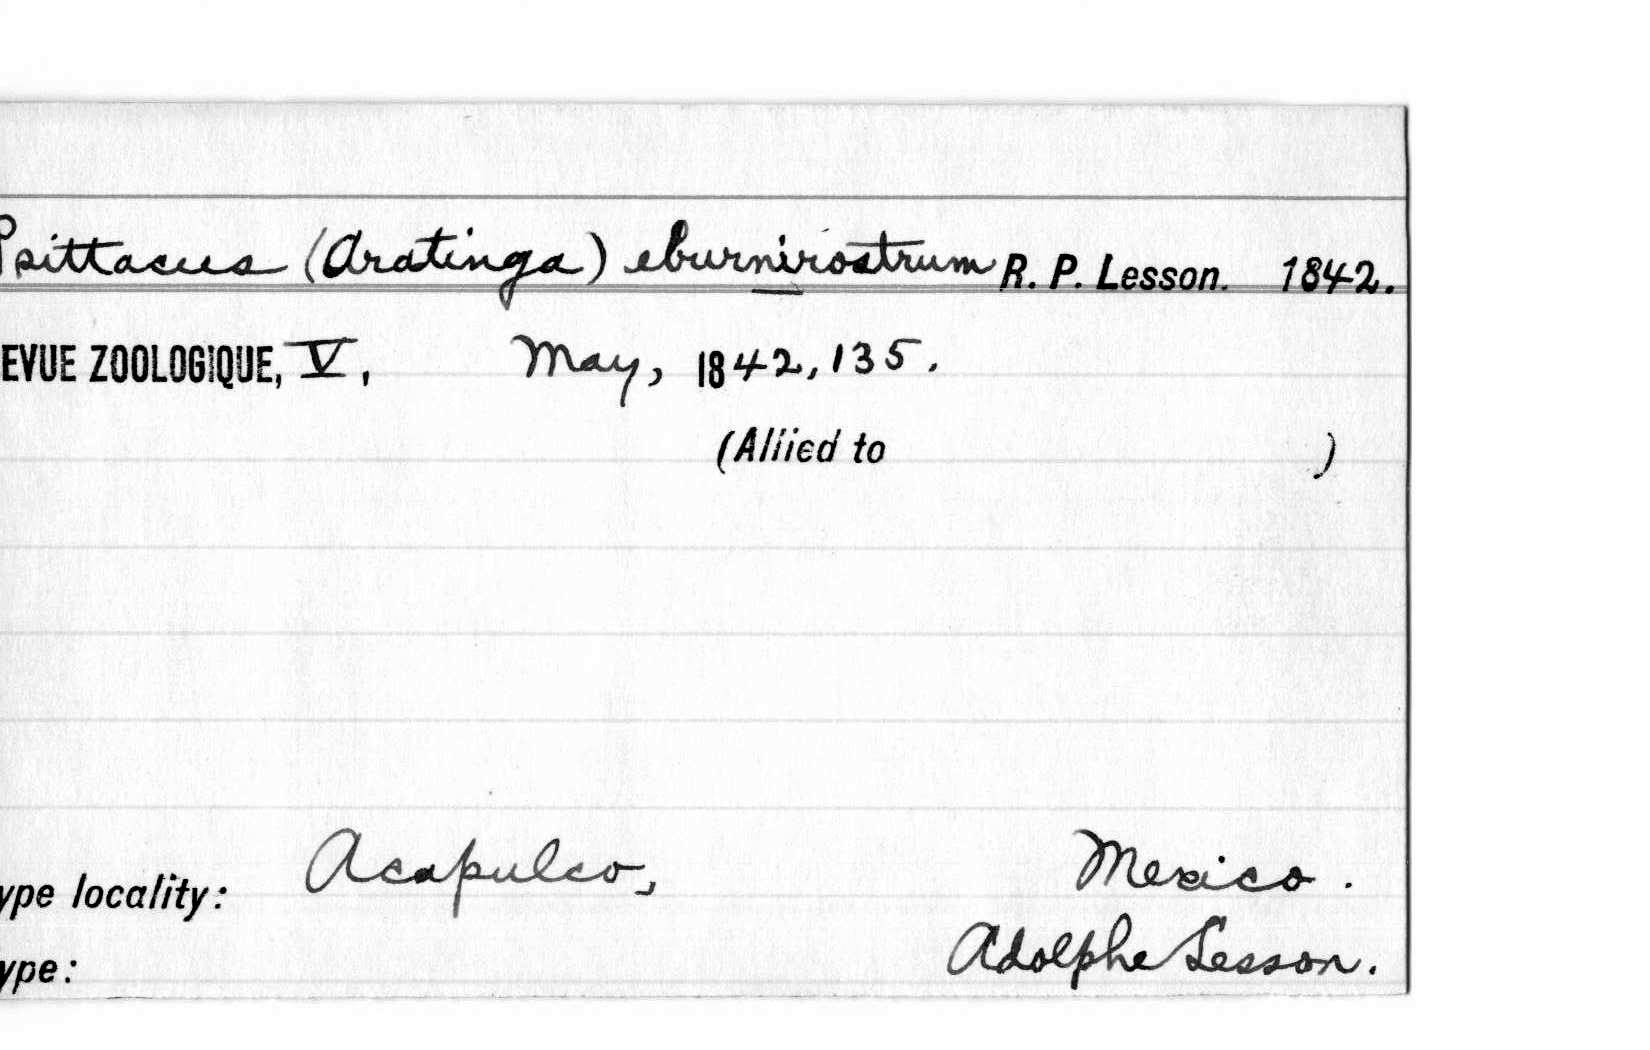 Psittacus (Aratinga) eburnirostrum R. P. Lesson. 1842.
EVUE ZOOLOGIQUE, V, May, 1842, 135.
(Allied to )
ype locality: Acapulco, Mexico.
ype: Adolphe Lesson.